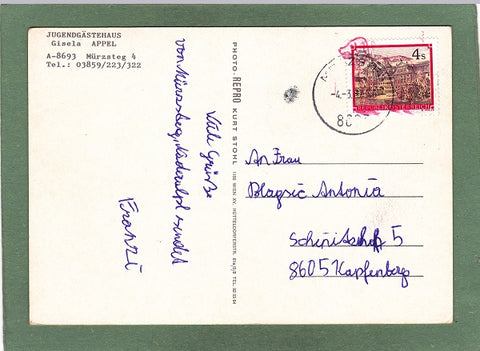 JUGENDGÄSTEHAUS
Gisela APPEL
A-8693 Mürzsteg 4
Tel.: 03859/223/322
Viele Grüße
von Mürzsteg, Niederalpl sendet
Franzi
PHOTO-REPRO KURT STOHL
4s
REPUBLIK ÖSTERREICH
-4.-3.
An Frau
Blagsic Antonia
Schinitzhof 5
8605 Kapfenberg